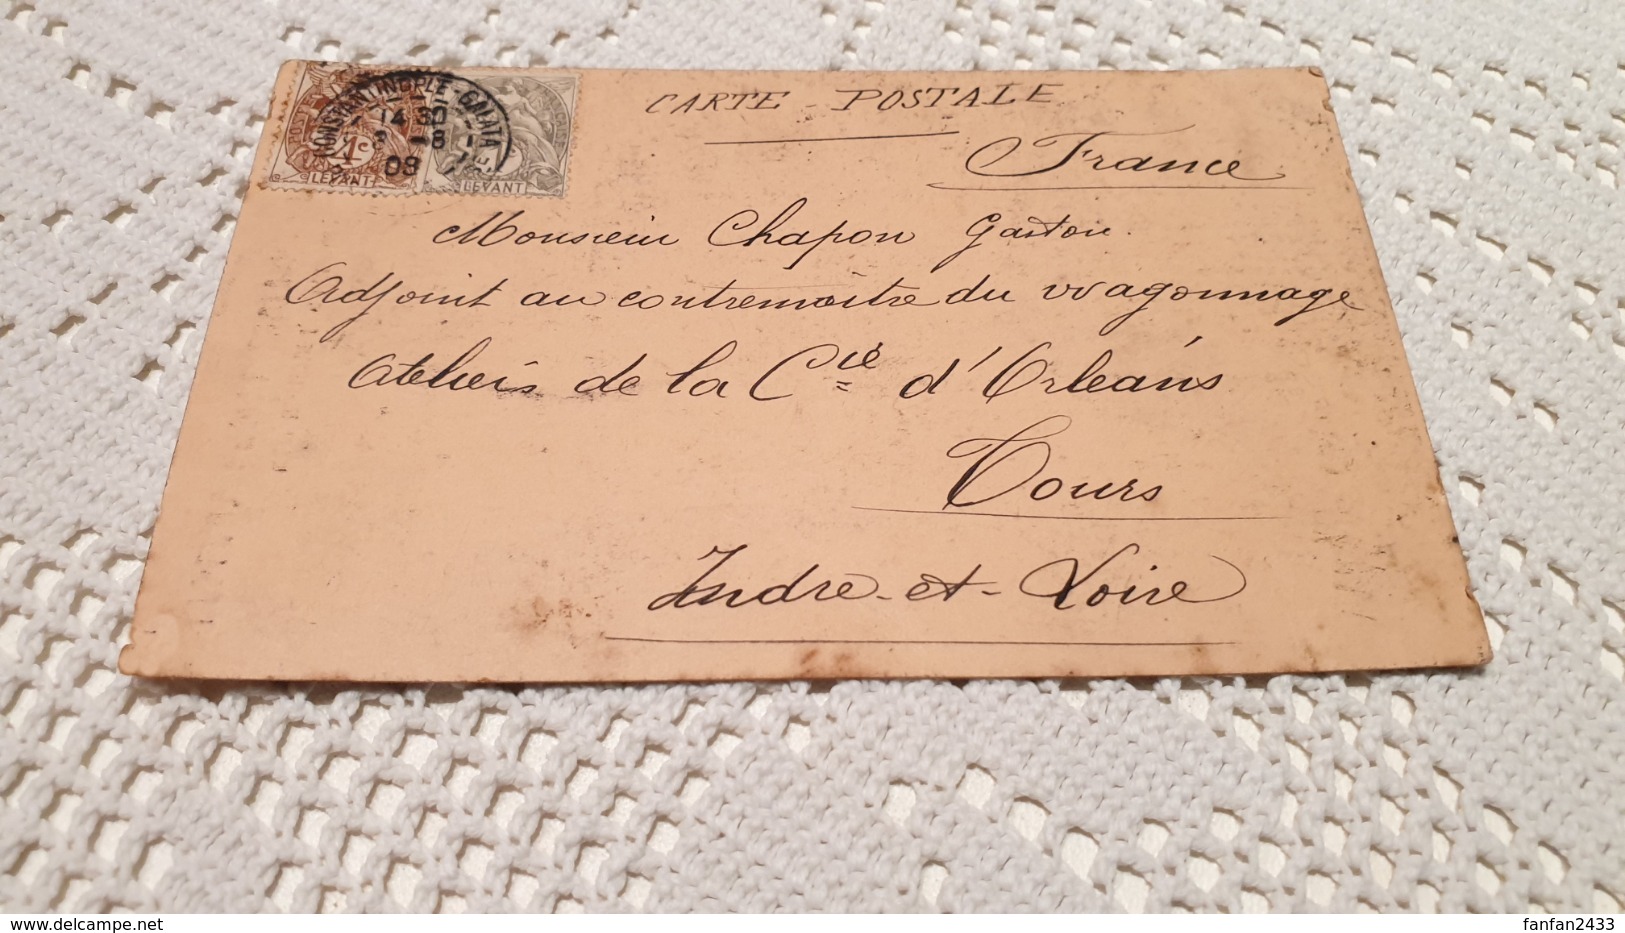 CONSTANTINOPLE-GALATA
14 30
8
09
POSTE
1c
LEVANT
LEVANT
CARTE - POSTALE
France
Monsieur Chapon Gaston.
Adjoint au contremaître du wagonnage
Ateliers de la Cie d'Orléans
Tours
Indre-et-Loire
www.delcampe.net
fanfan2433